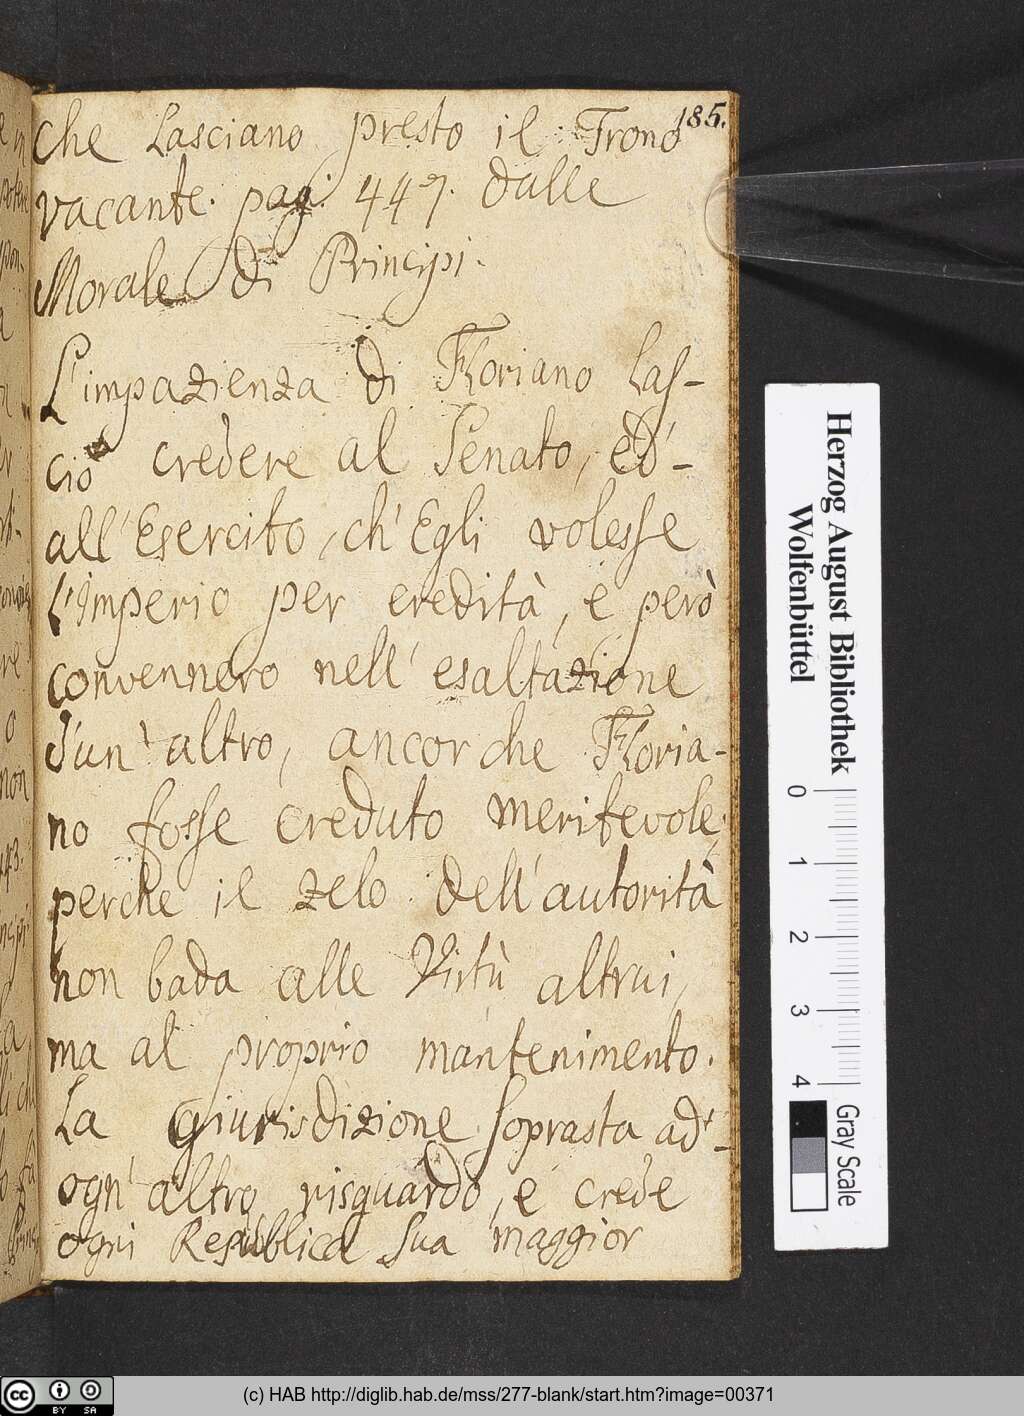 185.
che Lasciano presto il Trono
vacante. pag: 447. dalle
Morale di Principi.
L'impazienza di Floriano Las-
ciò credere al Senato, ed'-
all'Esercito, ch'Egli volesse
L'Imperio per eredità, e però
convennero nell'esaltazione
d'un'altro, ancor che Floria-
no fosse creduto meritevole,
perche il zelo dell'autorità
non bada alle Virtù altrui,
ma al proprio mantenimento.
La Giurisdizione soprasta ad'-
ogn'altro risguardo, e crede
ogni Republica sua maggior
Herzog August Bibliothek
Wolfenbüttel
0 1 2 3 4
Gray Scale
(c) HAB http://diglib.hab.de/mss/277-blank/start.htm?image=00371
cc BY SA